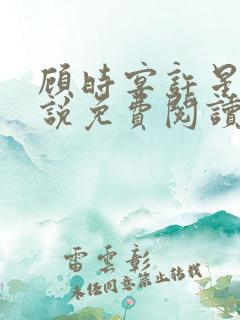 顾時宴許星
說免費閱讀
雷雲彰
未经同意禁止转载